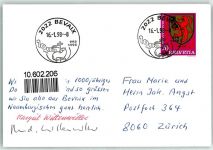 2022 BEVAIX
16.-1.90-8
2022 BEVAIX
16.-1.90-8
HELVETIA
10.602.206
W
1000jähriges
D
und so grüssen
wir Sie aus Bevaix im
Neuenburgischen ganz herzlich.
Margrit Wattenwiller
Frau Marie und
Herrn Jak. Angst
Postfach 364
8060 Zürich